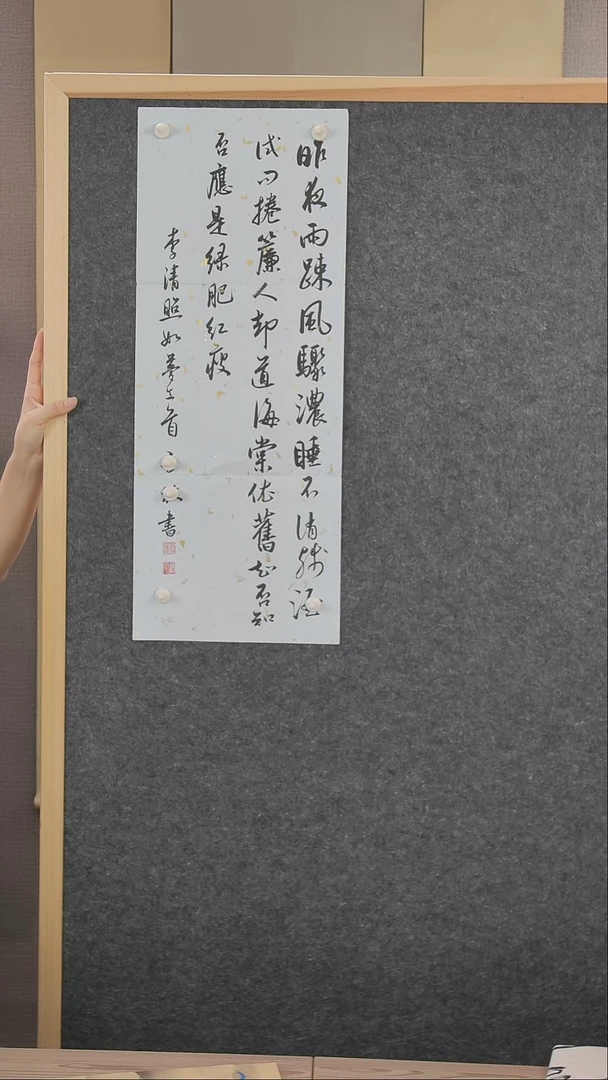 昨夜雨踈風驟濃睡不消殘酒
試問捲簾人却道海棠依舊知否知
否應是緑肥紅瘦
李清照如夢令一首 書